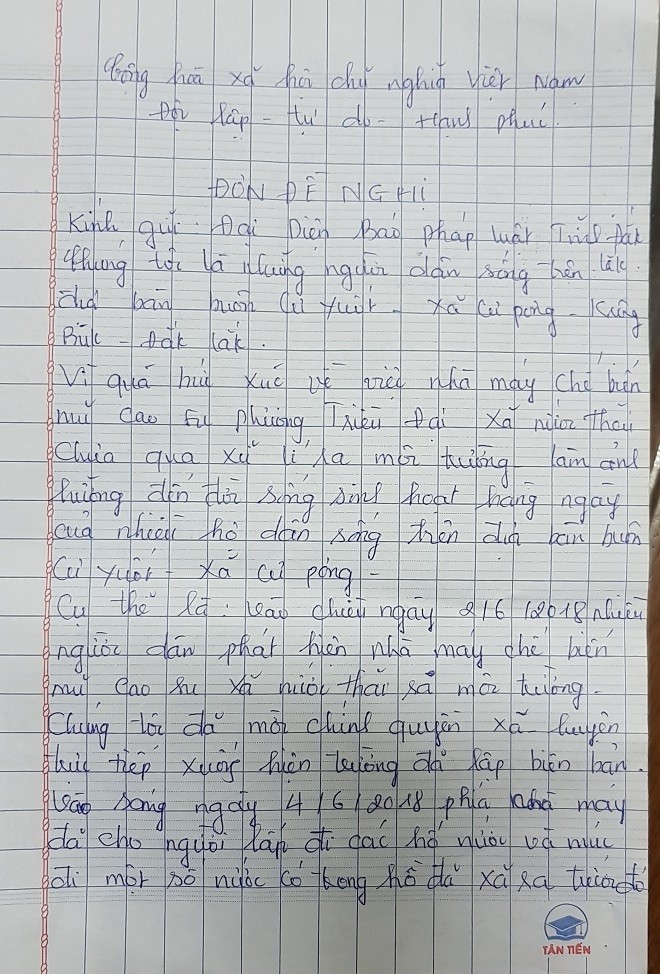 Cộng hoà xã hội chủ nghĩa Việt Nam
Độc lập - tự do - Hạnh phúc.
ĐƠN ĐỀ NGHỊ
Kính gửi: Đại Diện Báo pháp luật Tỉnh Đắk
lăk.
Chúng tôi là những người dân sống trên
địa bàn buôn Cư yuốt - xã Cư pơng - Krông
Búk - Đắk Lắk.
Vì quá bức xúc về việc nhà máy chế biến
mủ cao su phương Triệu Đại xã nước thải
Chưa qua xử lí ra môi trường làm ảnh
hưởng đến đời sống sinh hoạt hàng ngày
của nhiều hộ dân sống trên địa bàn buôn
Cư yuốt - xã cư pơng -
Cụ thể là: vào chiều ngày 2/6/2018 nhiều
người dân phát hiện nhà máy chế biến
mủ cao su xã nước thãi ra môi trường.
Chúng tôi đã mời chính quyền xã - huyện
trực tiếp xuống hiện trường đã lập biên bản.
Vào sáng ngày 4/6/2018 phía nhà máy
đã cho người lấp đi các hố nước và múc
đi một số nước có trong hồ đã xã ra trước đó
TÂN TIẾN